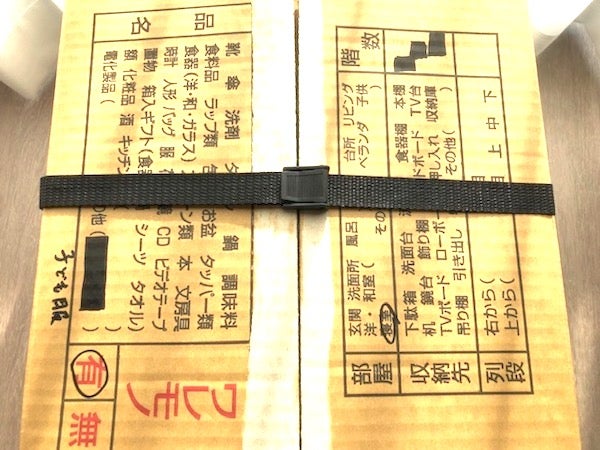 品名
靴 傘 洗剤 鍋 調味料
食料品 ラップ類 お盆 タッパー類
食器(洋・和・ガラス) ーン類 本 文房具
時計 人形 バッグ 服 類 CD ビデオテープ
置物 箱入ギフト(食器 シーツ タオル)
額 化粧品 酒 キッチン
電化製品( の他( )
子ども服
ワレモノ
有 無
階数
部屋
玄関 洗面所 風呂 台所 リビング
洋・和室( その ベランダ 子供
収納先
下駄箱 洗面台 食器棚 本棚
机 鏡台 飾り棚 ドボード TV台
TVボード ローボー 押し入れ 収納庫
吊り棚 引き出し その他(
列段
右から( 目 上 中 下
上から( 目